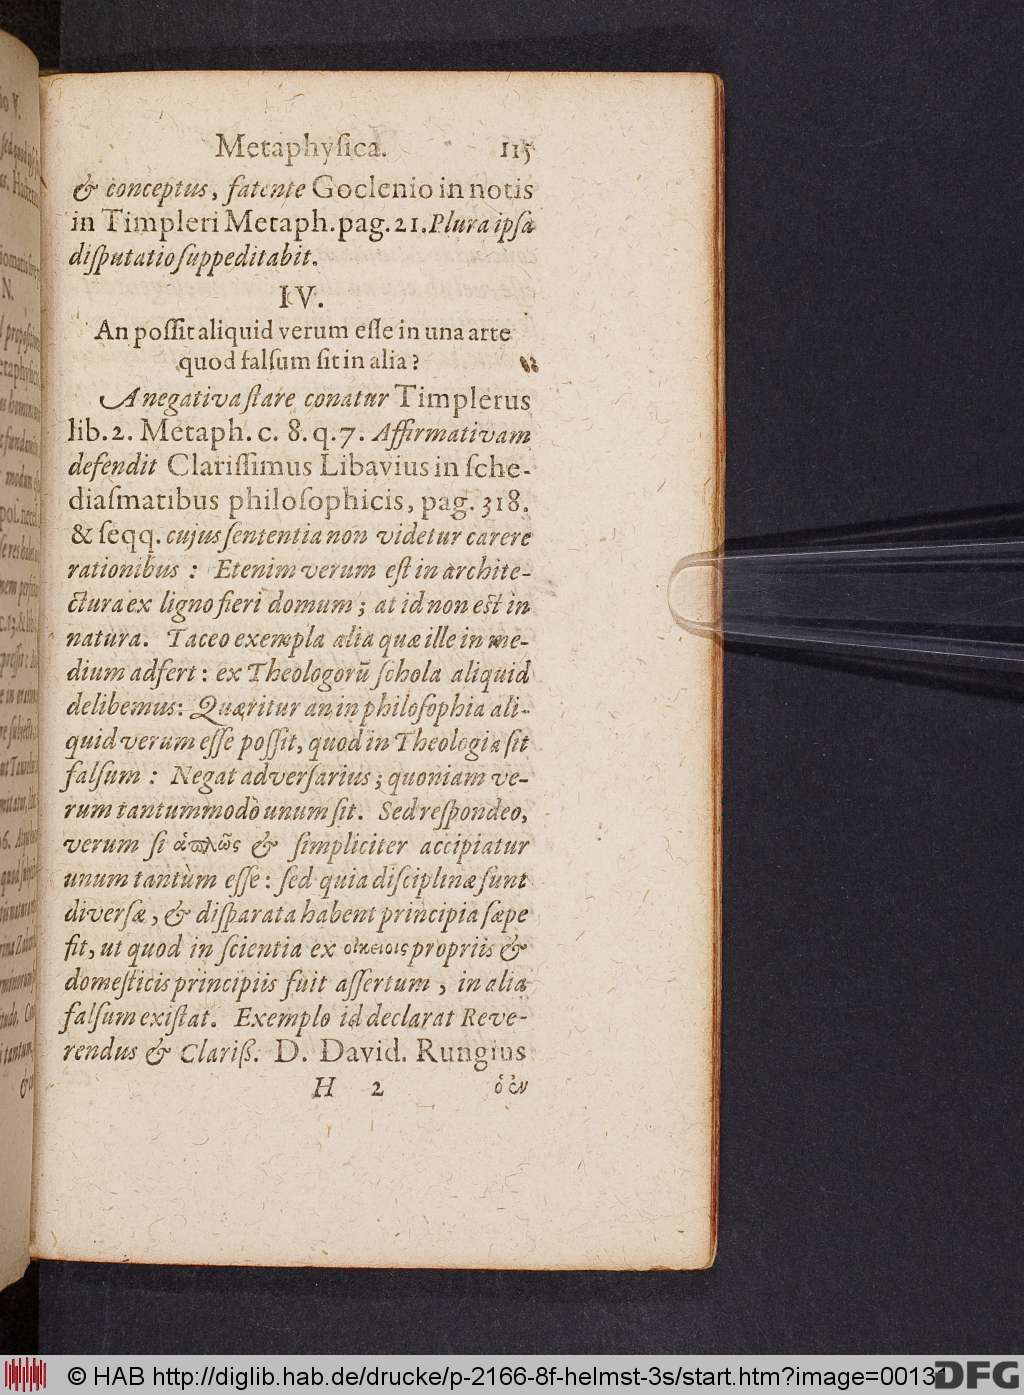 Metaphysica. 115
& conceptus, fatente Goclenio in notis
in Timpleri Metaph. pag. 21. Plura ipsa
disputatio suppeditabit.
IV.
An possit aliquid verum esse in una arte
quod falsum sit in alia?
A negativa stare conatur Timplerus
lib. 2. Metaph. c. 8. q. 7. Affirmativam
defendit Clarissimus Libavius in sche-
diasmatibus philosophicis, pag. 318.
& seqq. cujus sententia non videtur carere
rationibus : Etenim verum est in archite-
ctura ex ligno fieri domum ; at id non est in
natura. Taceo exempla alia quæ ille in me-
dium adfert : ex Theologorũ schola aliquid
delibemus: Quæritur an in philosophia ali-
quid verum esse possit, quod in Theologia sit
falsum : Negat adversarius ; quoniam ve-
rum tantummodò unum sit. Sed respondeo,
verum si ἁπλῶς & simpliciter accipiatur
unum tantùm esse : sed quia disciplinæ sunt
diversæ, & disparata habent principia sæpe
fit, ut quod in scientia ex οἰκείοις propriis &
domesticis principiis fuit assertum , in alia
falsum existat. Exemplo id declarat Reve-
rendus & Clariß. D. David. Rungius
H 2 ὁ ἐν
© HAB http://diglib.hab.de/drucke/p-2166-8f-helmst-3s/start.htm?image=00131
DFG